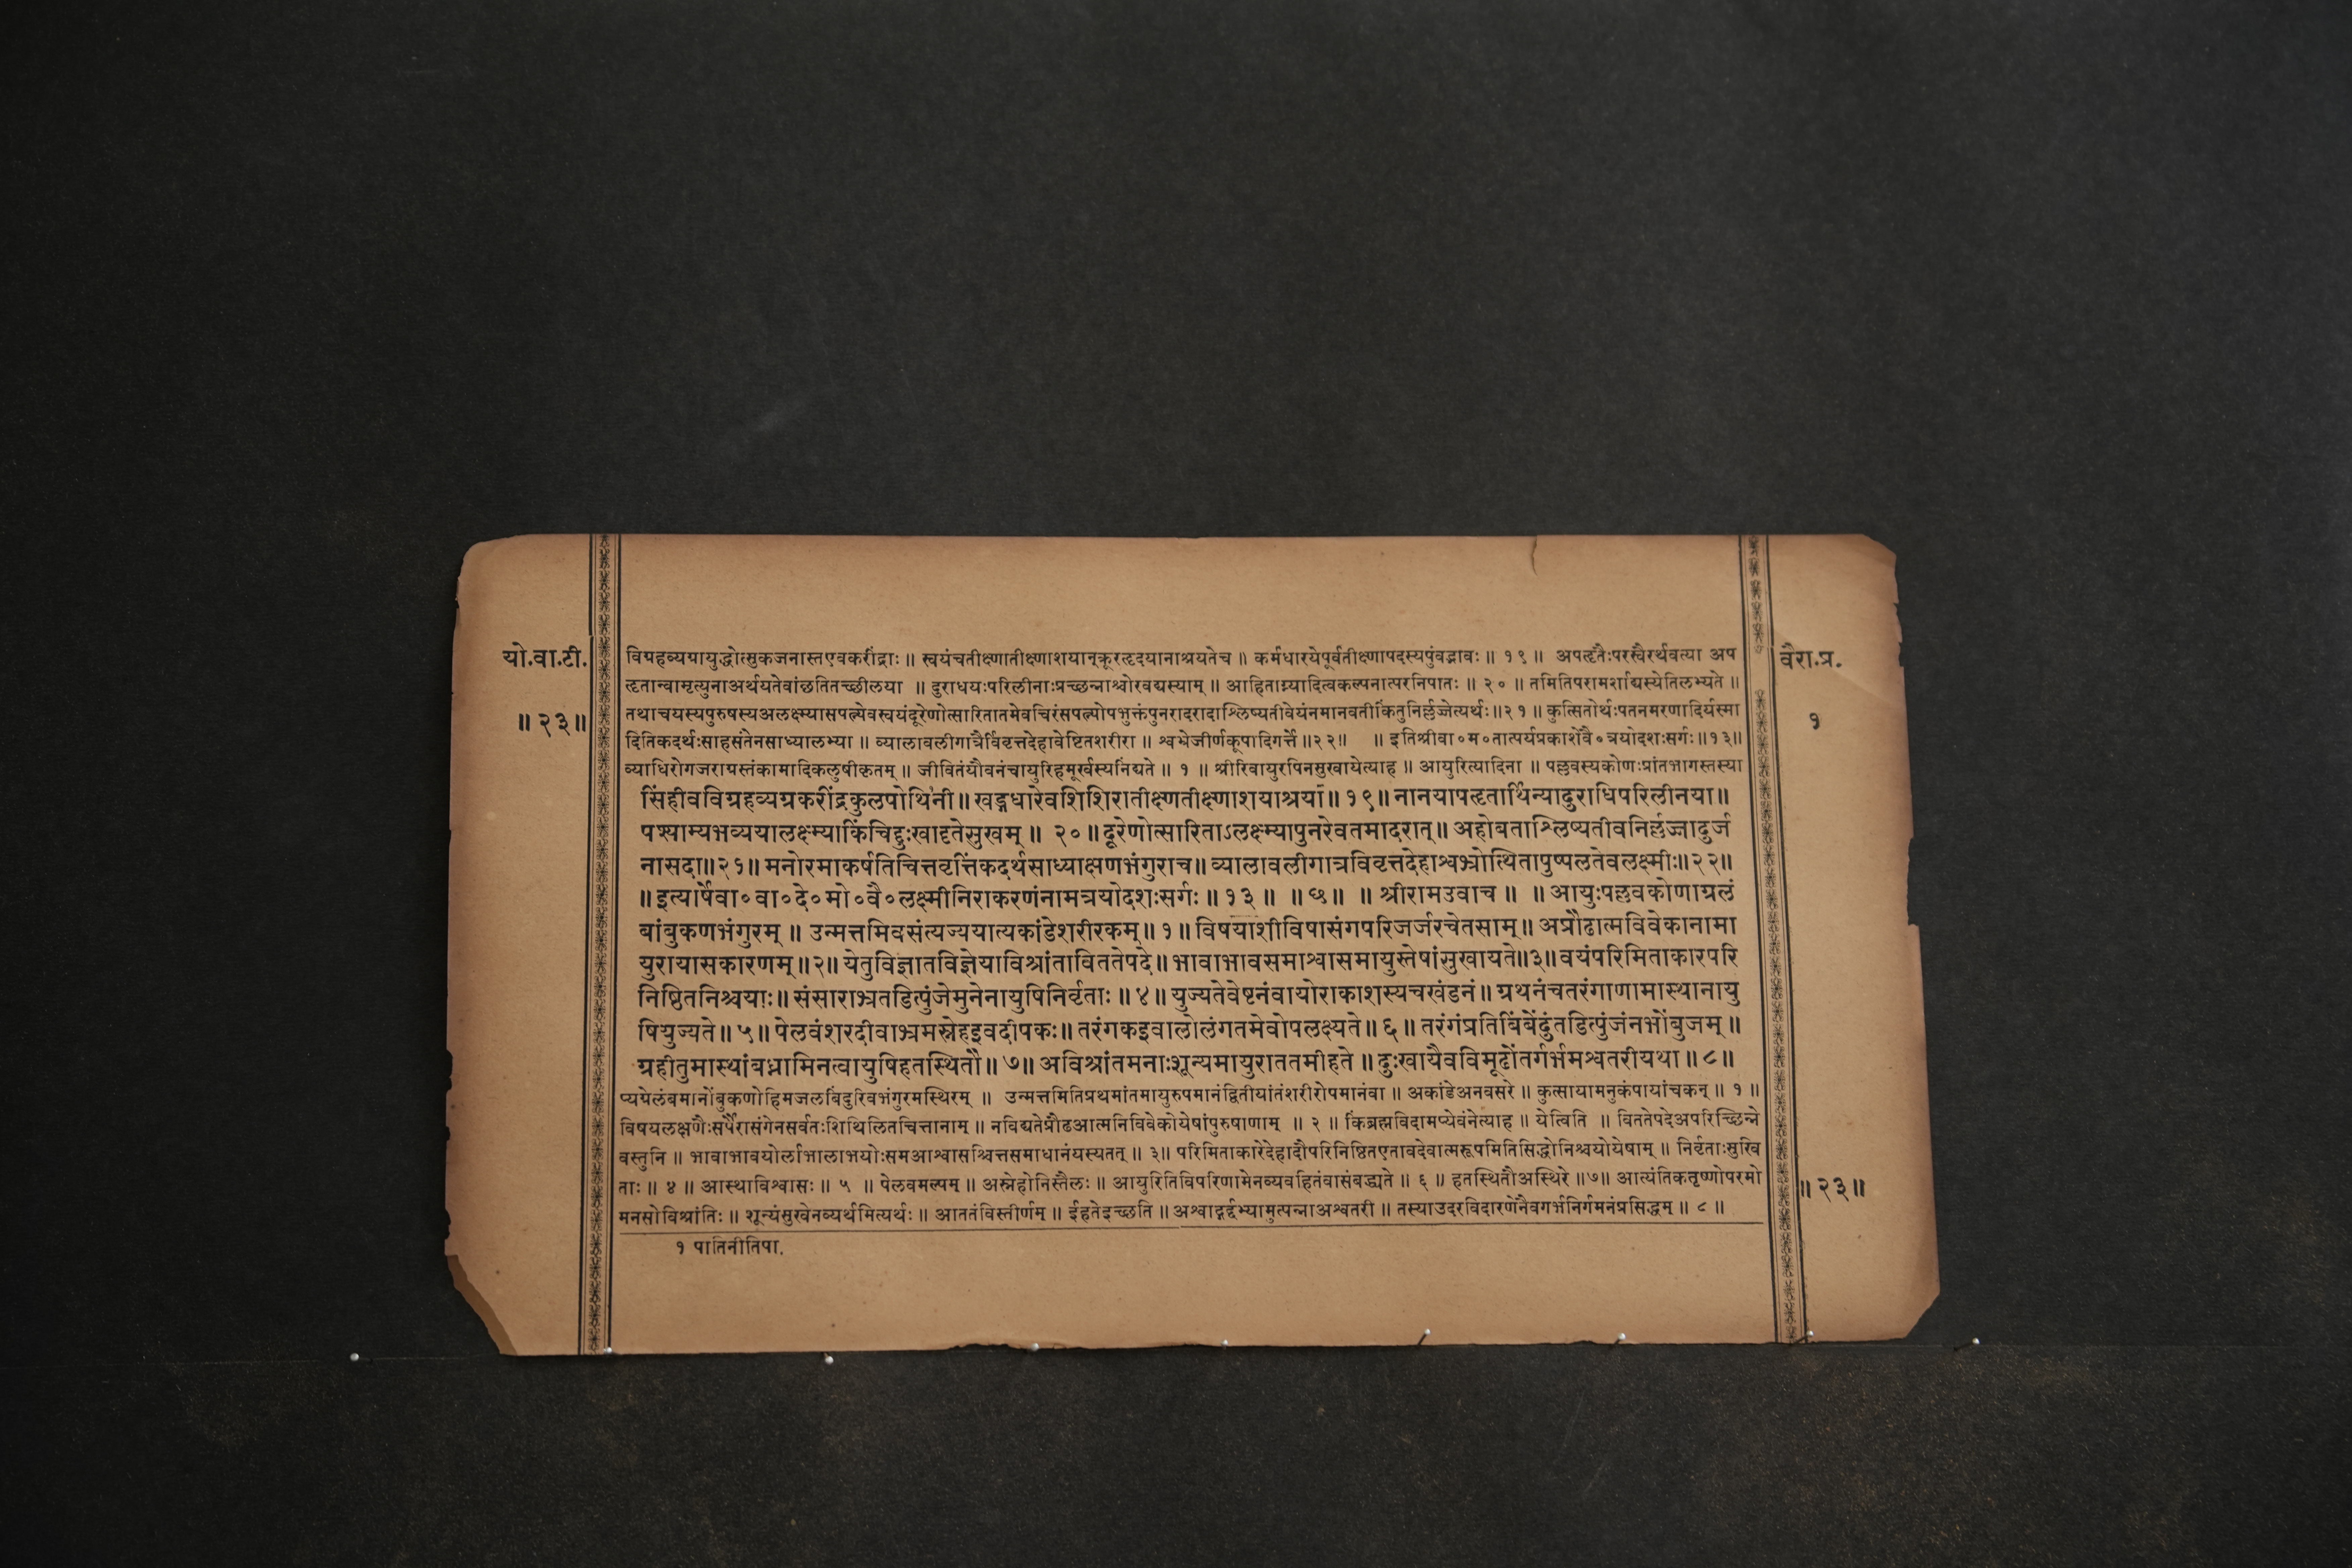 यो.वा.टी.
॥ २३॥
विग्रहव्यग्रायुद्धोत्सुकजनास्तएवकरींद्राः ॥ स्वयंचतीक्ष्णातीक्ष्णाशयान्क्रूरहृदयानाश्रयतेच ॥ कर्मधारयेपूर्वतीक्ष्णापदस्यपुंवद्भावः ॥ १९ ॥ अपहृतैःपरस्वैरर्थवत्या अप
हृतान्वामृत्युनाअर्थयतेवांछतितच्छीलया ॥ दुराधयःपरिलीनाःप्रच्छन्नाश्चोरवद्यस्याम् ॥ आहिताग्न्यादित्वकल्पनात्परनिपातः ॥ २० ॥ तमितिपरामर्शाद्यस्येतिलभ्यते ॥
तथाचयस्यपुरुषस्यअलक्ष्म्यासपत्न्येवस्वयंदूरेणोत्सारितातमेवचिरंसपत्न्योपभुक्तंपुनरादरादाश्लिष्यतीवेयंनमानवतीकिंतुनिर्लज्जेत्यर्थः॥२१॥ कुत्सितोर्थःपतनमरणादिर्यस्मा
दितिकदर्थःसाहसंतेनसाध्यालभ्या ॥ व्यालावलीगात्रैर्विवृत्तदेहावेष्टितशरीरा ॥ श्वभ्रेजीर्णकूपादिगर्त्ते ॥२२॥ ॥ इतिश्रीवा॰म॰तात्पर्यप्रकाशेवै॰त्रयोदशःसर्गः॥१३॥
व्याधिरोगजराग्रस्तंकामादिकलुषीकृतम् ॥ जीवितंयौवनंचायुरिहमूर्खस्यनिंद्यते ॥ १ ॥ श्रीरिवायुरपिनसुखायेत्याह ॥ आयुरित्यादिना ॥ पल्लवस्यकोणःप्रांतभागस्तस्या
सिंहीवविग्रहव्यग्रकरींद्रकुलपोथिनी॥ खड्गधारेवशिशिरातीक्ष्णतीक्ष्णाशयाश्रया॥ १९॥ नानयापहृतार्थिन्यादुराधिपरिलीनया॥
पश्याम्यभव्ययालक्ष्म्याकिंचिद्दुःखादृतेसुखम् ॥ २० ॥ दूरेणोत्सारिताऽलक्ष्म्यापुनरेवतमादरात्॥ अहोबताश्लिष्यतीवनिर्लज्जादुर्ज
नासदा॥२१॥ मनोरमाकर्षतिचित्तवृत्तिंकदर्थसाध्याक्षणभंगुराच॥ व्यालावलीगात्रविवृत्तदेहाश्वभ्रोत्थितापुष्पलतेवलक्ष्मीः॥२२॥
॥ इत्यार्षेवा॰वा॰दे॰मो॰वै॰लक्ष्मीनिराकरणंनामत्रयोदशःसर्गः ॥ १३ ॥ ॥ छ॥ ॥ श्रीरामउवाच ॥ ॥ आयुःपल्लवकोणाग्रलं
बांबुकणभंगुरम् ॥ उन्मत्तमिवसंत्यज्ययात्यकांडेशरीरकम्॥ १॥ विषयाशीविषासंगपरिजर्जरचेतसाम्॥ अप्रौढात्मविवेकानामा
युरायासकारणम्॥२॥ येतुविज्ञातविज्ञेयाविश्रांताविततेपदे॥ भावाभावसमाश्वासमायुस्तेषांसुखायते॥३॥ वयंपरिमिताकारपरि
निष्ठितनिश्चयाः॥ संसाराभ्रतडित्पुंजेमुनेनायुषिनिर्वृताः ॥ ४॥ युज्यतेवेष्टनंवायोराकाशस्यचखंडनं॥ ग्रथनंचतरंगाणामास्थानायु
षियुज्यते॥ ५॥ पेलवंशरदीवाभ्रमस्नेहइवदीपकः॥ तरंगकइवालोलंगतमेवोपलक्ष्यते॥ ६॥ तरंगंप्रतिबिंबेंदुंतडित्पुंजंनभोंबुजम् ॥
ग्रहीतुमास्थांबध्नामिनत्वायुषिहतस्थितौ॥ ७॥ अविश्रांतमनाःशून्यमायुराततमीहते ॥ दुःखायैवविमूढोंतर्गर्भमश्वतरीयथा ॥ ८॥
प्यग्रेलंबमानोंबुकणोहिमजलबिंदुरिवभंगुरमस्थिरम् ॥ उन्मत्तमितिप्रथमांतमायुरुपमानंद्वितीयांतंशरीरोपमानंवा ॥ अकांडेअनवसरे ॥ कुत्सायामनुकंपायांचकन् ॥ १ ॥
विषयलक्षणैःसर्पैरासंगेनसर्वतःशिथिलितचित्तानाम् ॥ नविद्यतेप्रौढआत्मनिविवेकोयेषांपुरुषाणाम् ॥ २ ॥ किंब्रह्मविदामप्येवंनेत्याह ॥ येत्विति ॥ विततेपदेअपरिच्छिन्ने
वस्तुनि ॥ भावाभावयोर्लाभालाभयोःसमआश्वासश्चित्तसमाधानंयस्यतत् ॥ ३॥ परिमिताकारेदेहादौपरिनिष्ठितएतावदेवात्मरूपमितिसिद्धोनिश्चयोयेषाम् ॥ निर्वृताःसुखि
ताः ॥ ४ ॥ आस्थाविश्वासः ॥ ५ ॥ पेलवमल्पम् ॥ अस्नेहोनिस्तैलः ॥ आयुरितिविपरिणामेनव्यवहितंवासंबद्ध्यते ॥ ६ ॥ हतस्थितौअस्थिरे ॥७॥ आत्यंतिकतृष्णोपरमो
मनसोविश्रांतिः ॥ शून्यंसुखेनव्यर्थमित्यर्थः ॥ आततंविस्तीर्णम् ॥ ईहतेइच्छति ॥ अश्वाद्गर्द्दभ्यामुत्पन्नाअश्वतरी ॥ तस्याउदरविदारणेनैवगर्भनिर्गमनंप्रसिद्धम् ॥ ८ ॥
१ पातिनीतिपा.
वैरा.प्र.
१
॥ २३॥